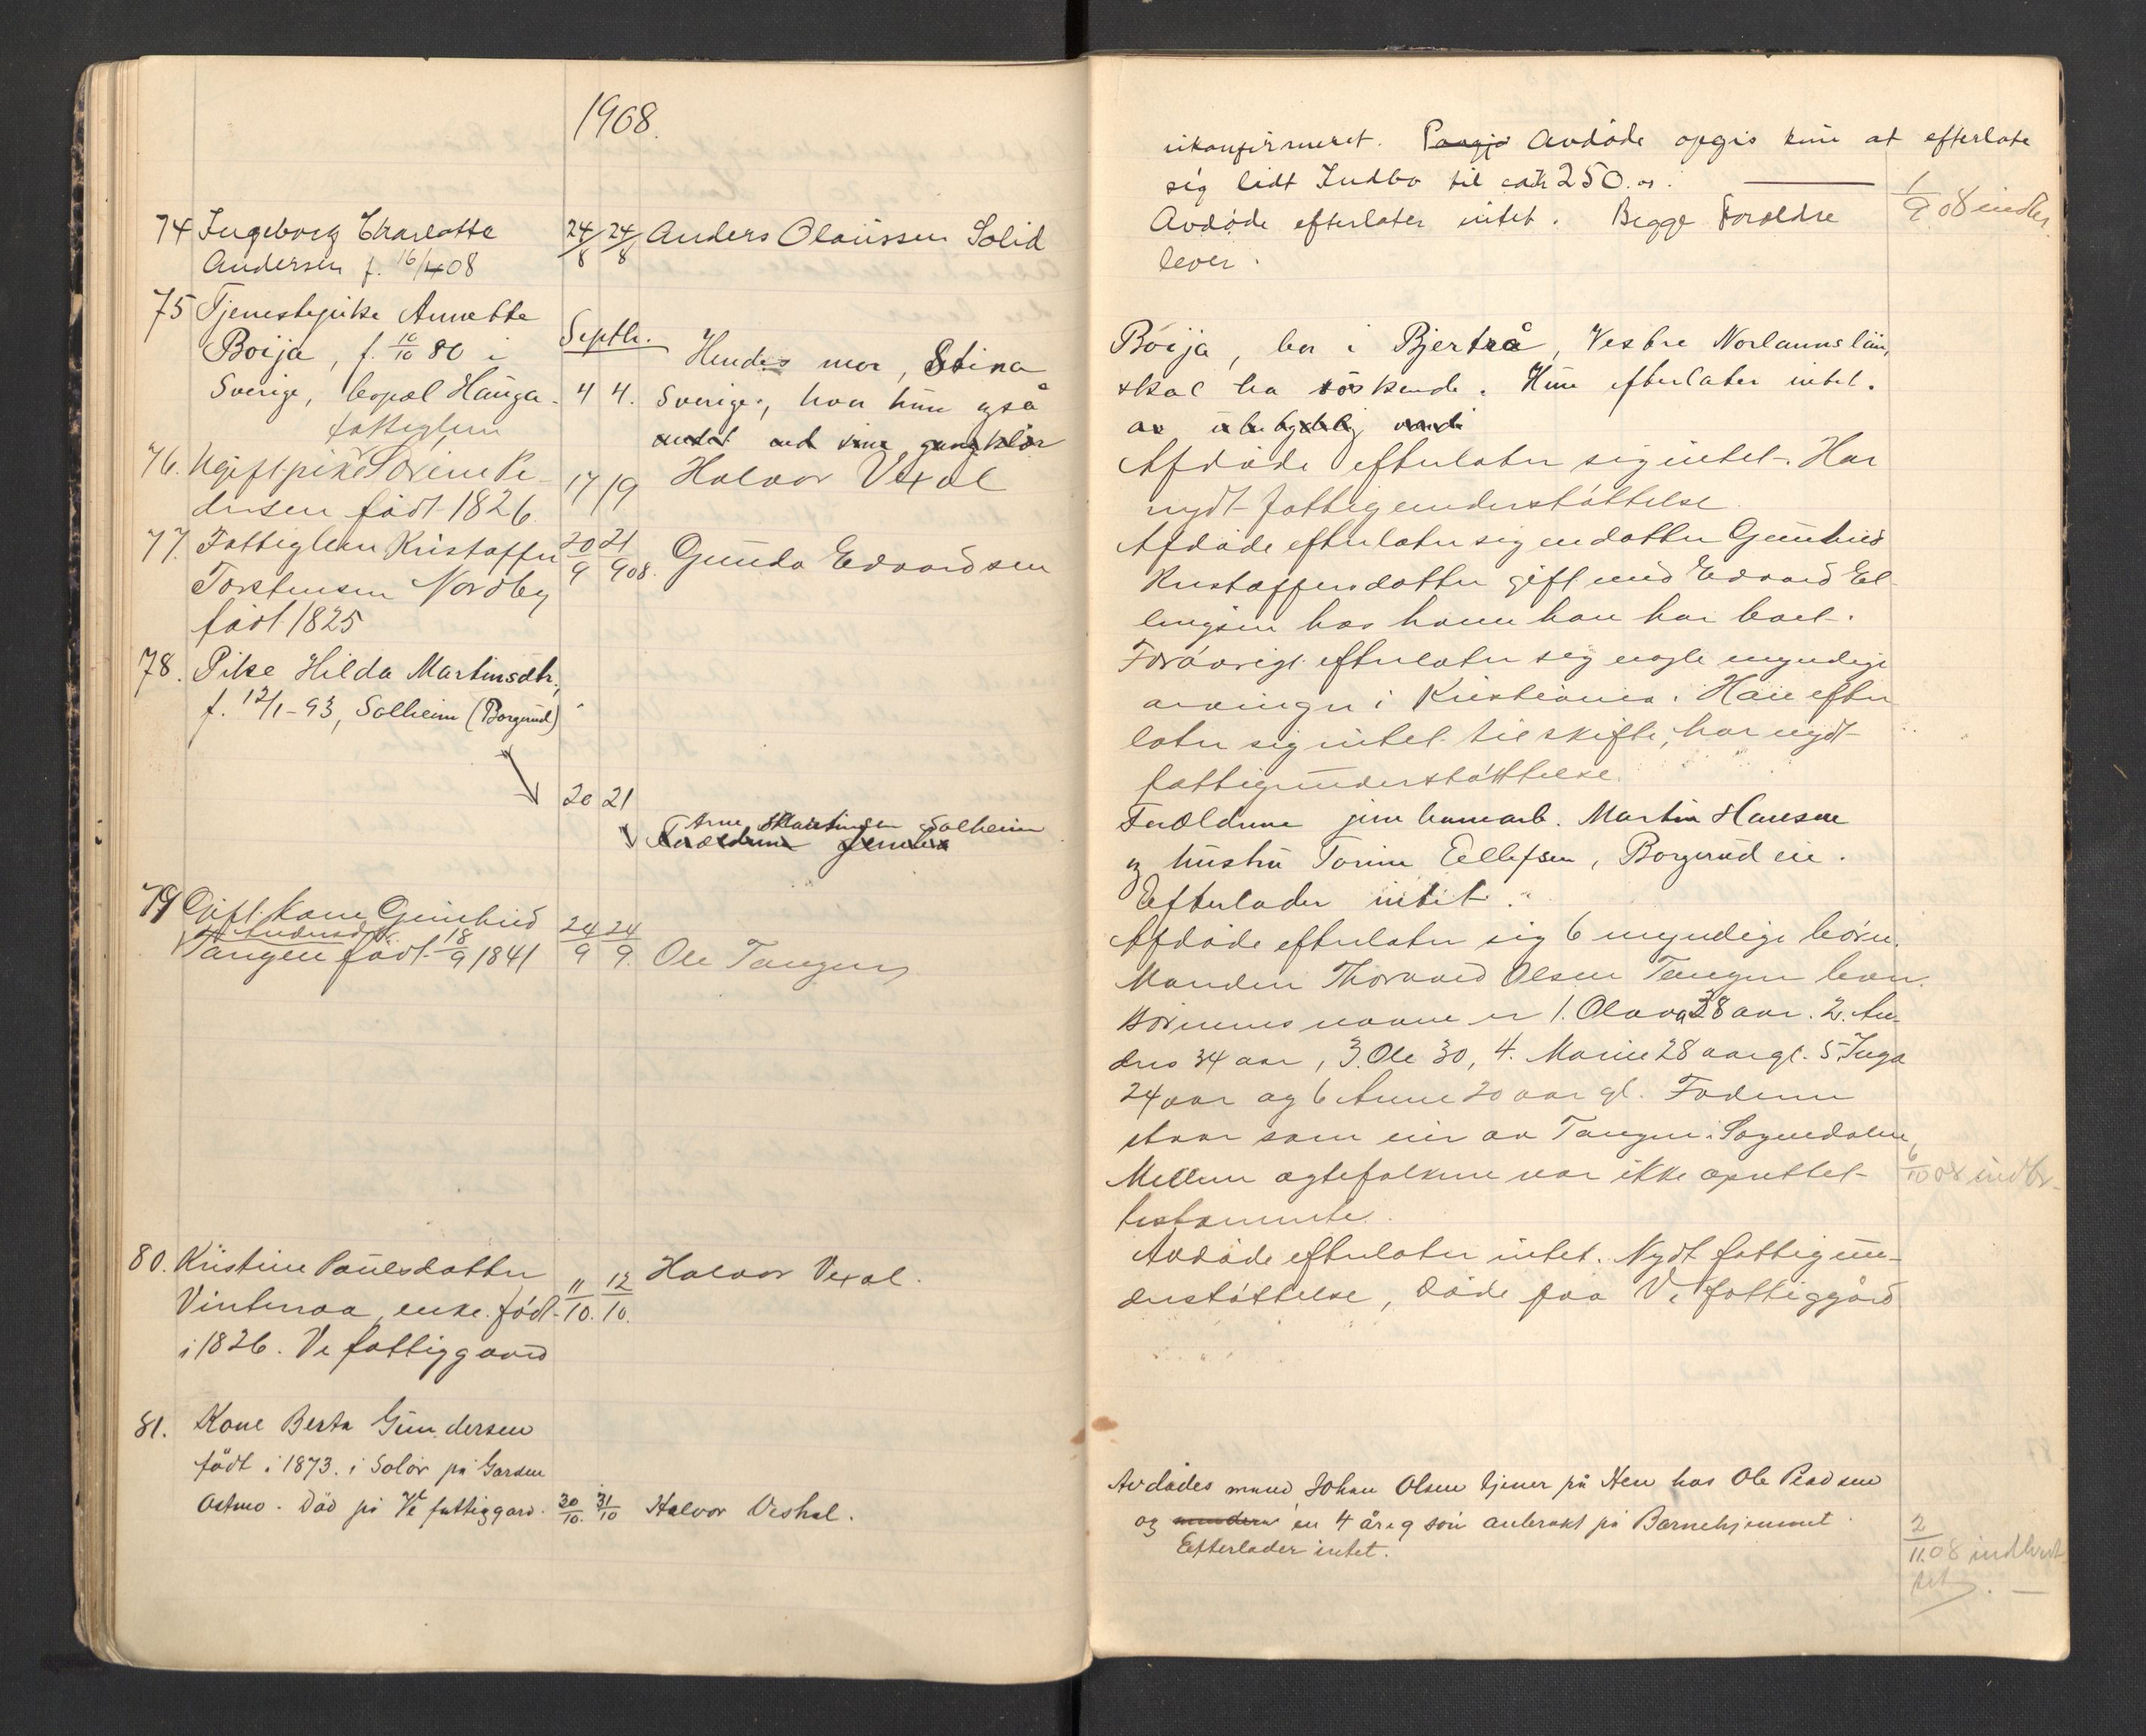 1908.
74 Ingeborg Charlotte
Andersen f. 16/4 08
24/8 24/8 Anders Olaussen Solid
75 Tjenestepike Annette
Boija, f. 10/10 80 i
Sverige, bopæl Hauga.
Septbr.
4 4.
Hendes mor, Stina
Sverige, hvor hun også
andet end sine gangklær
fattiglem
76. Ugift pike Sørine Pe-
dersen født 1826.
17/19 Halvor Vexal
77. Fattiglem Kristoffer
Torstensen Nordby
født 1825
20/9 21/9 08. Gunda Edvardsen
78. Pike Hilda Martinsdtr.,
f. 12/1-93, Solheim (Borgerud)
20 21
Arne Martinsen Solheim
Forældrene
79 Gift kone Gunhild
Andersdtr.
Tangen født 18/9 1841
24/9 24/9. Ole Tangen
80. Kristine Paulsdatter
Vinteraa, enke. født
i 1826. Ve fattiggaard
11/10. 12/10. Halvor Vexal.
81. Kone Berta Gundersen
født i 1873. i Solør på Garden
Ostmo. Død på Ve fattiggard.
30/10. 31/10 Halvor Veshal.
ukonfirmeret. Avdøde opgis kun at efterlate
sig lidt Indbo til ca kr 250.00.
Avdøde efterlater intet. Begge Forældre
lever.
1/9 08 indb.
Boija, bor i Bjertrå, Vestre Norlannslän,
skal ha søskende. Hun efterlater intet.
av ubetydelig værdi
Afdøde efterlater sig intet. Har
nydt fattigunderstøttelse.
Afdøde efterlater sig en datter Gunhild
Kristoffersdatter gift med Edvard El-
lingsen hos hvem han har boet.
Forøvrigt efterlater sig nogle myndige
arvinger i Kristiania. Han efter
later sig intet til skifte, har nydt
fattigunderstøttelse.
Forældrene jernbanearb. Martin Hansen
og hustru Torine Ellefsen, Borgerud eie.
Efterlader intet.
Afdøde efterlater sig 6 myndige børn.
Manden Thorvald Olsen Tangen lever.
Børnenes navne er 1. Olava 38 aar. 2. An-
dres 34 aar, 3. Ole 30, 4. Marie 28 aar gl. 5. Inga
24 aar og 6 Anne 20 aar gl. Faderen
staar som eier av Tangen i Sognedalen,
Mellem ægtefolkene var ikke oprettet
testamente.
6/10 08 indb.
Avdøde efterlater intet. Nydt fattigun-
derstøttelse, døde paa Ve fattiggård
Avdødes mand, Johan Olsen tjener på Hen hos Ole
og en 4 årig søn anbrakt på Barnehjemmet.
Efterlader intet.
2/11.08 indberet-
tet.